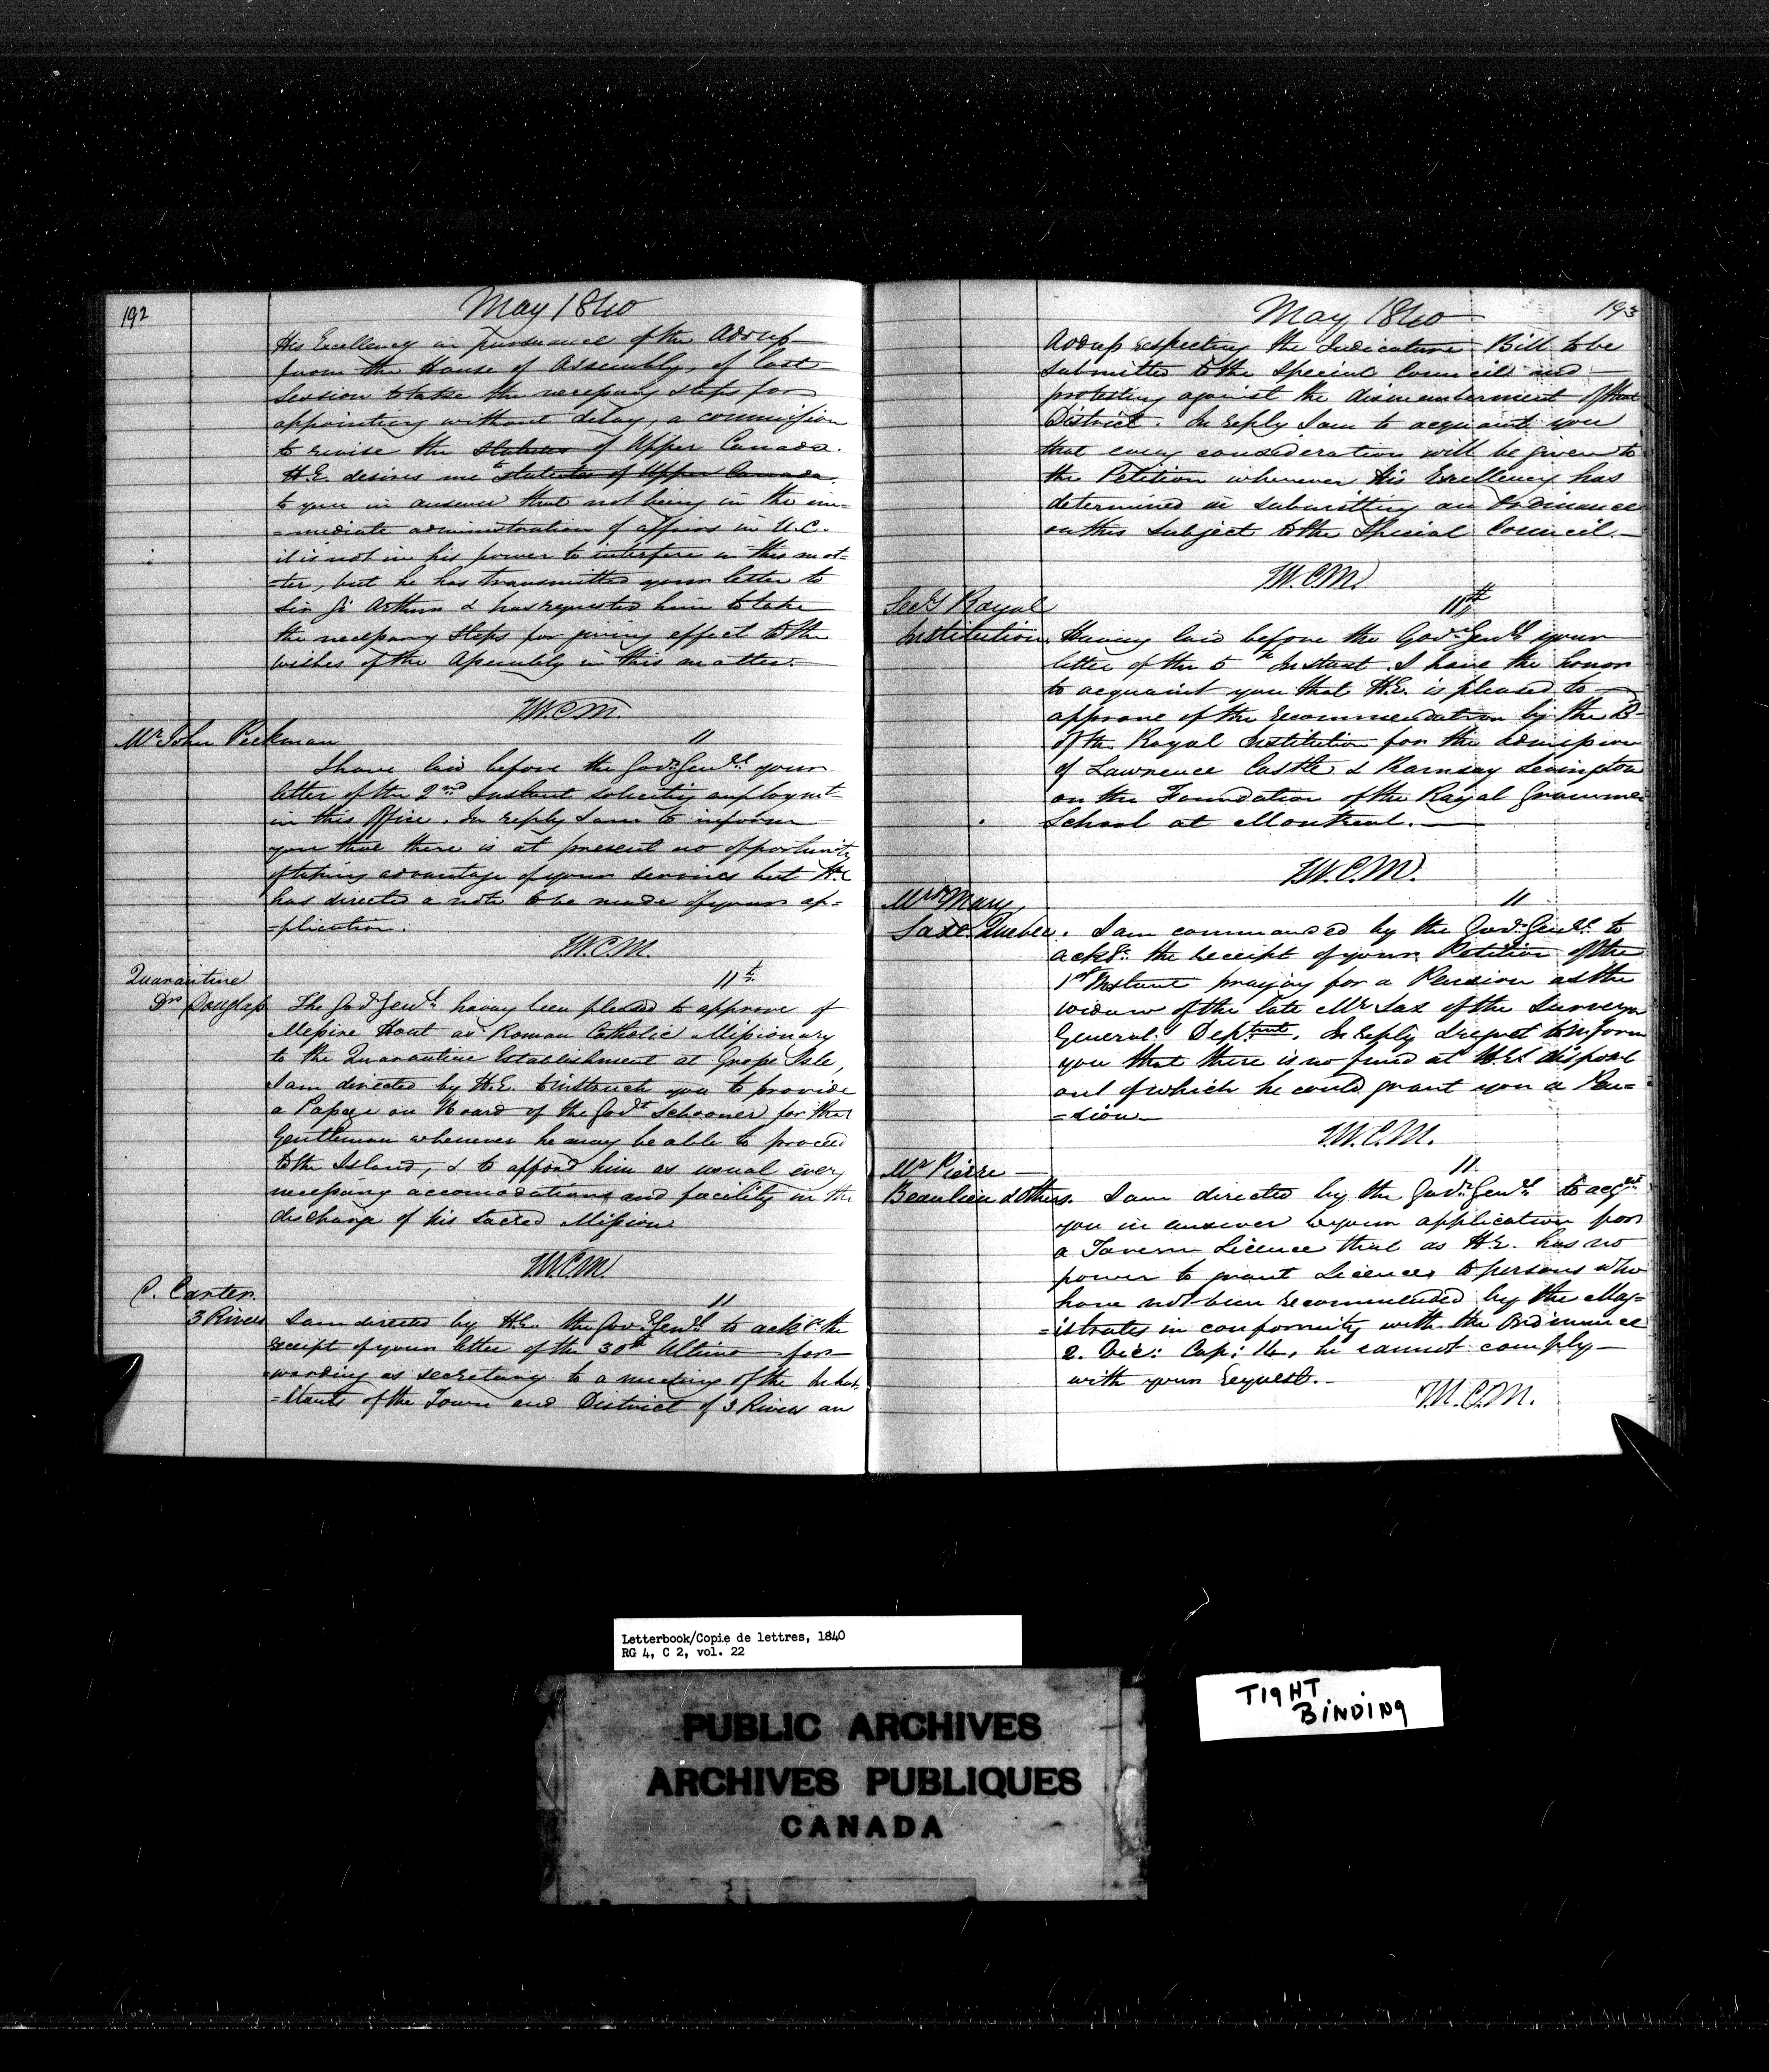 192
May 1840
His Excellency in pursuance of the Address
from the House of Assembly, of last
Session to take the necessary steps for
appointing without delay, a commission
to revise the statutes of Upper Canada.
H.E. desires me to statute of Upper Canada
to you in answer that not being in the im=
=mediate administration of affairs in U.C.
it is not in his power to interfere in this mat=
=ter, but he has transmitted your letter to
Sir G. Arthur & has requested him to take
the necessary steps for giving effect to the
wishes of the Assembly in this matter.
T.W.C.M.
Mr. John Peekman
11
I have laid before the Govr. Genl. your
letter of the 2nd Instant soliciting employmt
in this Office. In reply I am to inform
you that there is at present no opportunity
of taking advantage of your services but H.E
has directed a note to be made of your ap=
=plication.
T.W.C.M.
Quarantine
Drs Douglass
11th
The Govr Genl. having been pleased to approve of
Messire Hout as Roman Catholic Missionary
to the Quarantine Establishment at Grosse Isle,
I am directed by H.E. to instruct you to provide
a Passage on board of the Govt Schooner for that
Gentleman whenever he may be able to proceed
to the Island, & to afford him as usual every
necessary accomodations and facility in the
discharge of his sacred Mission
T.W.C.M.
C. Carter.
3 Rivers
11
I am directed by H.E. the Govr. Genl to ackge. the
receipt of your letter of the 30th Ultimo for=
=warding as secretary to a meeting of the Inhab=
=itants of the Town and District of 3 Rivers an
193
May 1840
Address respecting the Judicature Bill to be
submitted to the Special Council and
protesting against the dismemberment of that
District. In reply I am to acquaint you
that every consideration will be given to
the Petition whenever His Excellency has
determined in submitting an Ordinance
on this subject to the Special Council.
T.W.C.M.
Secy Royal
Institution.
11th
Having laid before the Govr. Genl. your
letter of the 5th Instant. I have the honor
to acquaint you that H.E. is pleased to
approve of the recommendation by the Bd.
of the Royal Institution for the admission
of Lawrence Castle & Ramsay Levingston
on the Foundation of the Royal Grammer
School at Montreal.
T.W.C.M.
Mrs Mary
Saxe Quebec.
11
I am commanded by the Govr. Genl. to
ackge. the receipt of your Petition of the
1st Instant praying for a Pension as the
widow of the late Mr Sax of the Surveyor
General's Deptmt. In reply I regret to inform
you that there is no fund at H.E's disposal
out of which he could grant you a Pen=
=sion
T.W.C.M.
Mr Pierre
Beaulieu & others.
11
I am directed by the Govr. Genl. to acqt
you in answer to your application for
a Tavern Licence that as H.E. has no
power to grant Licences to persons who
have not been recommended by the Mag=
=istrates in conformity with the Ordinance
2. Vic: Cap: 14, he cannot comply
with your request.
T.W.C.M.
Letterbook/Copie de lettres, 1840
RG 4, C 2, vol. 22
PUBLIC ARCHIVES
ARCHIVES PUBLIQUES
CANADA
TIGHT
BINDING